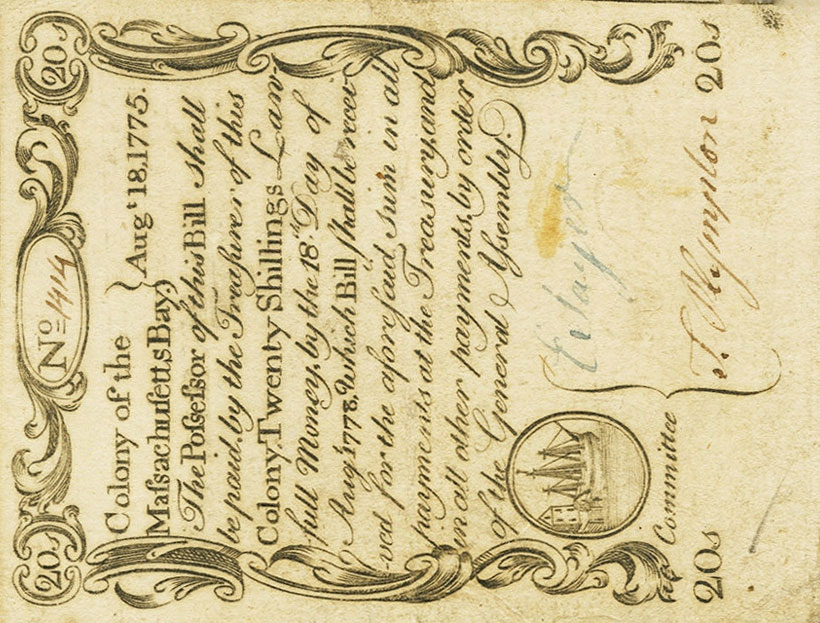 20s No 1414 20s
Colony of the
Maſsachuſetts Bay, } Augt 18, 1775.
The Poſseſsor of this Bill ſhall
be paid, by the Treaſurer of this
Colony, Twenty Shillings Law-
full Money, by the 18th Day of
Augt 1778, Which Bill ſhall be recei-
ved for the aforeſaid ſum in all
payments at the Treaſury, and
in all other payments, by order
of the General Aſsembly.
Committee
20s 20s